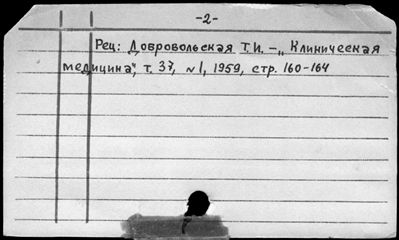 -2-
Рец: Добровольская Т.И. – „Клиническая
медицина", т. 37, №1, 1959, стр. 160-164